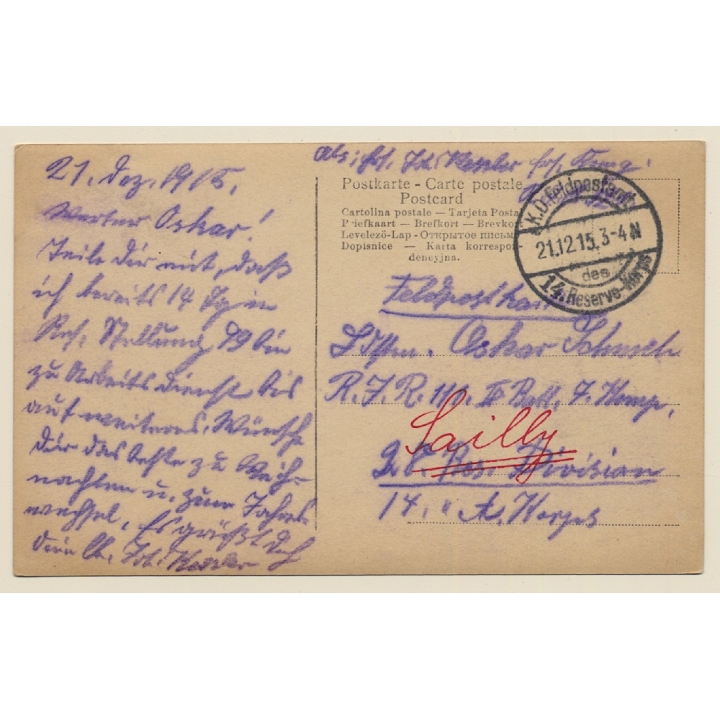 21. Dez. 1915.
Werter Oskar!
Teile Dir mit, daß
ich bereits 14 Tg in
Res. Stellung 
zu Arbeitsdienst bis
auf weiteres. Wünsche
Dir das beste zu Weih-
nachten u. zum Jahres-
wechsel. Es grüßt Dich
Dein
Abs:
Postkarte - Carte postale
Postcard
Cartolina postale — Tarjeta Posta
Briefkaart — Brefkort — Brevkor
Levelező-Lap - Открытое письм
Dopisnice — Karta korrespon-
dencyjna.
K.D. Feldpostamt
21.12.15. 3-4 N
des
14. Reserve-Korps
Feldpostkar
Oskar
R. J. R. Batl. 7. Komp.
Sailly
Res. Division
14. " A. Korps